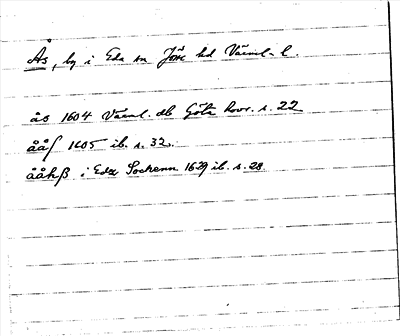 Ås, by i Eda sn Jösse hd Värml. l.
ås 1604 Värml. db Göta hovr. s. 22
ååſ 1605 ib. s. 32.
ååhß i Eda Sochenn 1629 ib. s. 28